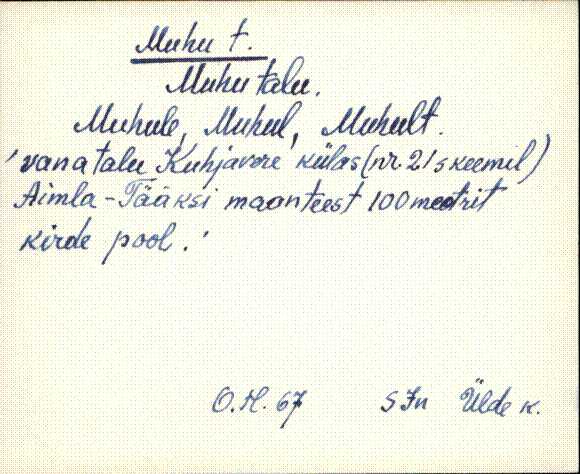 Muhu t.
Muhu talu.
Muhule, Muhul, Muhult.
'vana talu Kuhjavere külas (nr. 21 skeemil)
Aimla - Tääksi maanteest 100 meetrit
kirde pool.'
O.H. 67 SJn Ülde k.